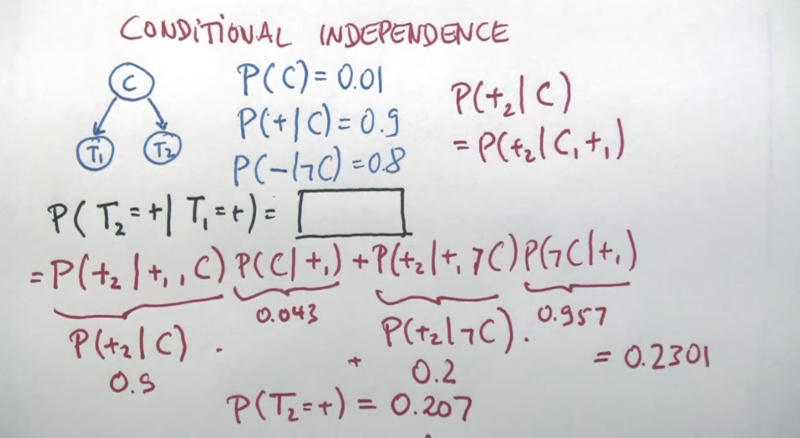 CONDITIONAL INDEPENDENCE
C
T₁ T₂
P(C) = 0.01
P(+|C) = 0.9
P(-|¬C) = 0.8
P(+₂|C)
= P(+₂|C,+₁)
P(T₂=+|T₁=+) =
= P(+₂|+₁,C) P(C|+₁) + P(+₂|+₁¬C) P(¬C|+₁)
0.043 0.957
P(+₂|C) · + P(+₂|¬C) ·
0.9 0.2
= 0.2301
P(T₂=+) = 0.207